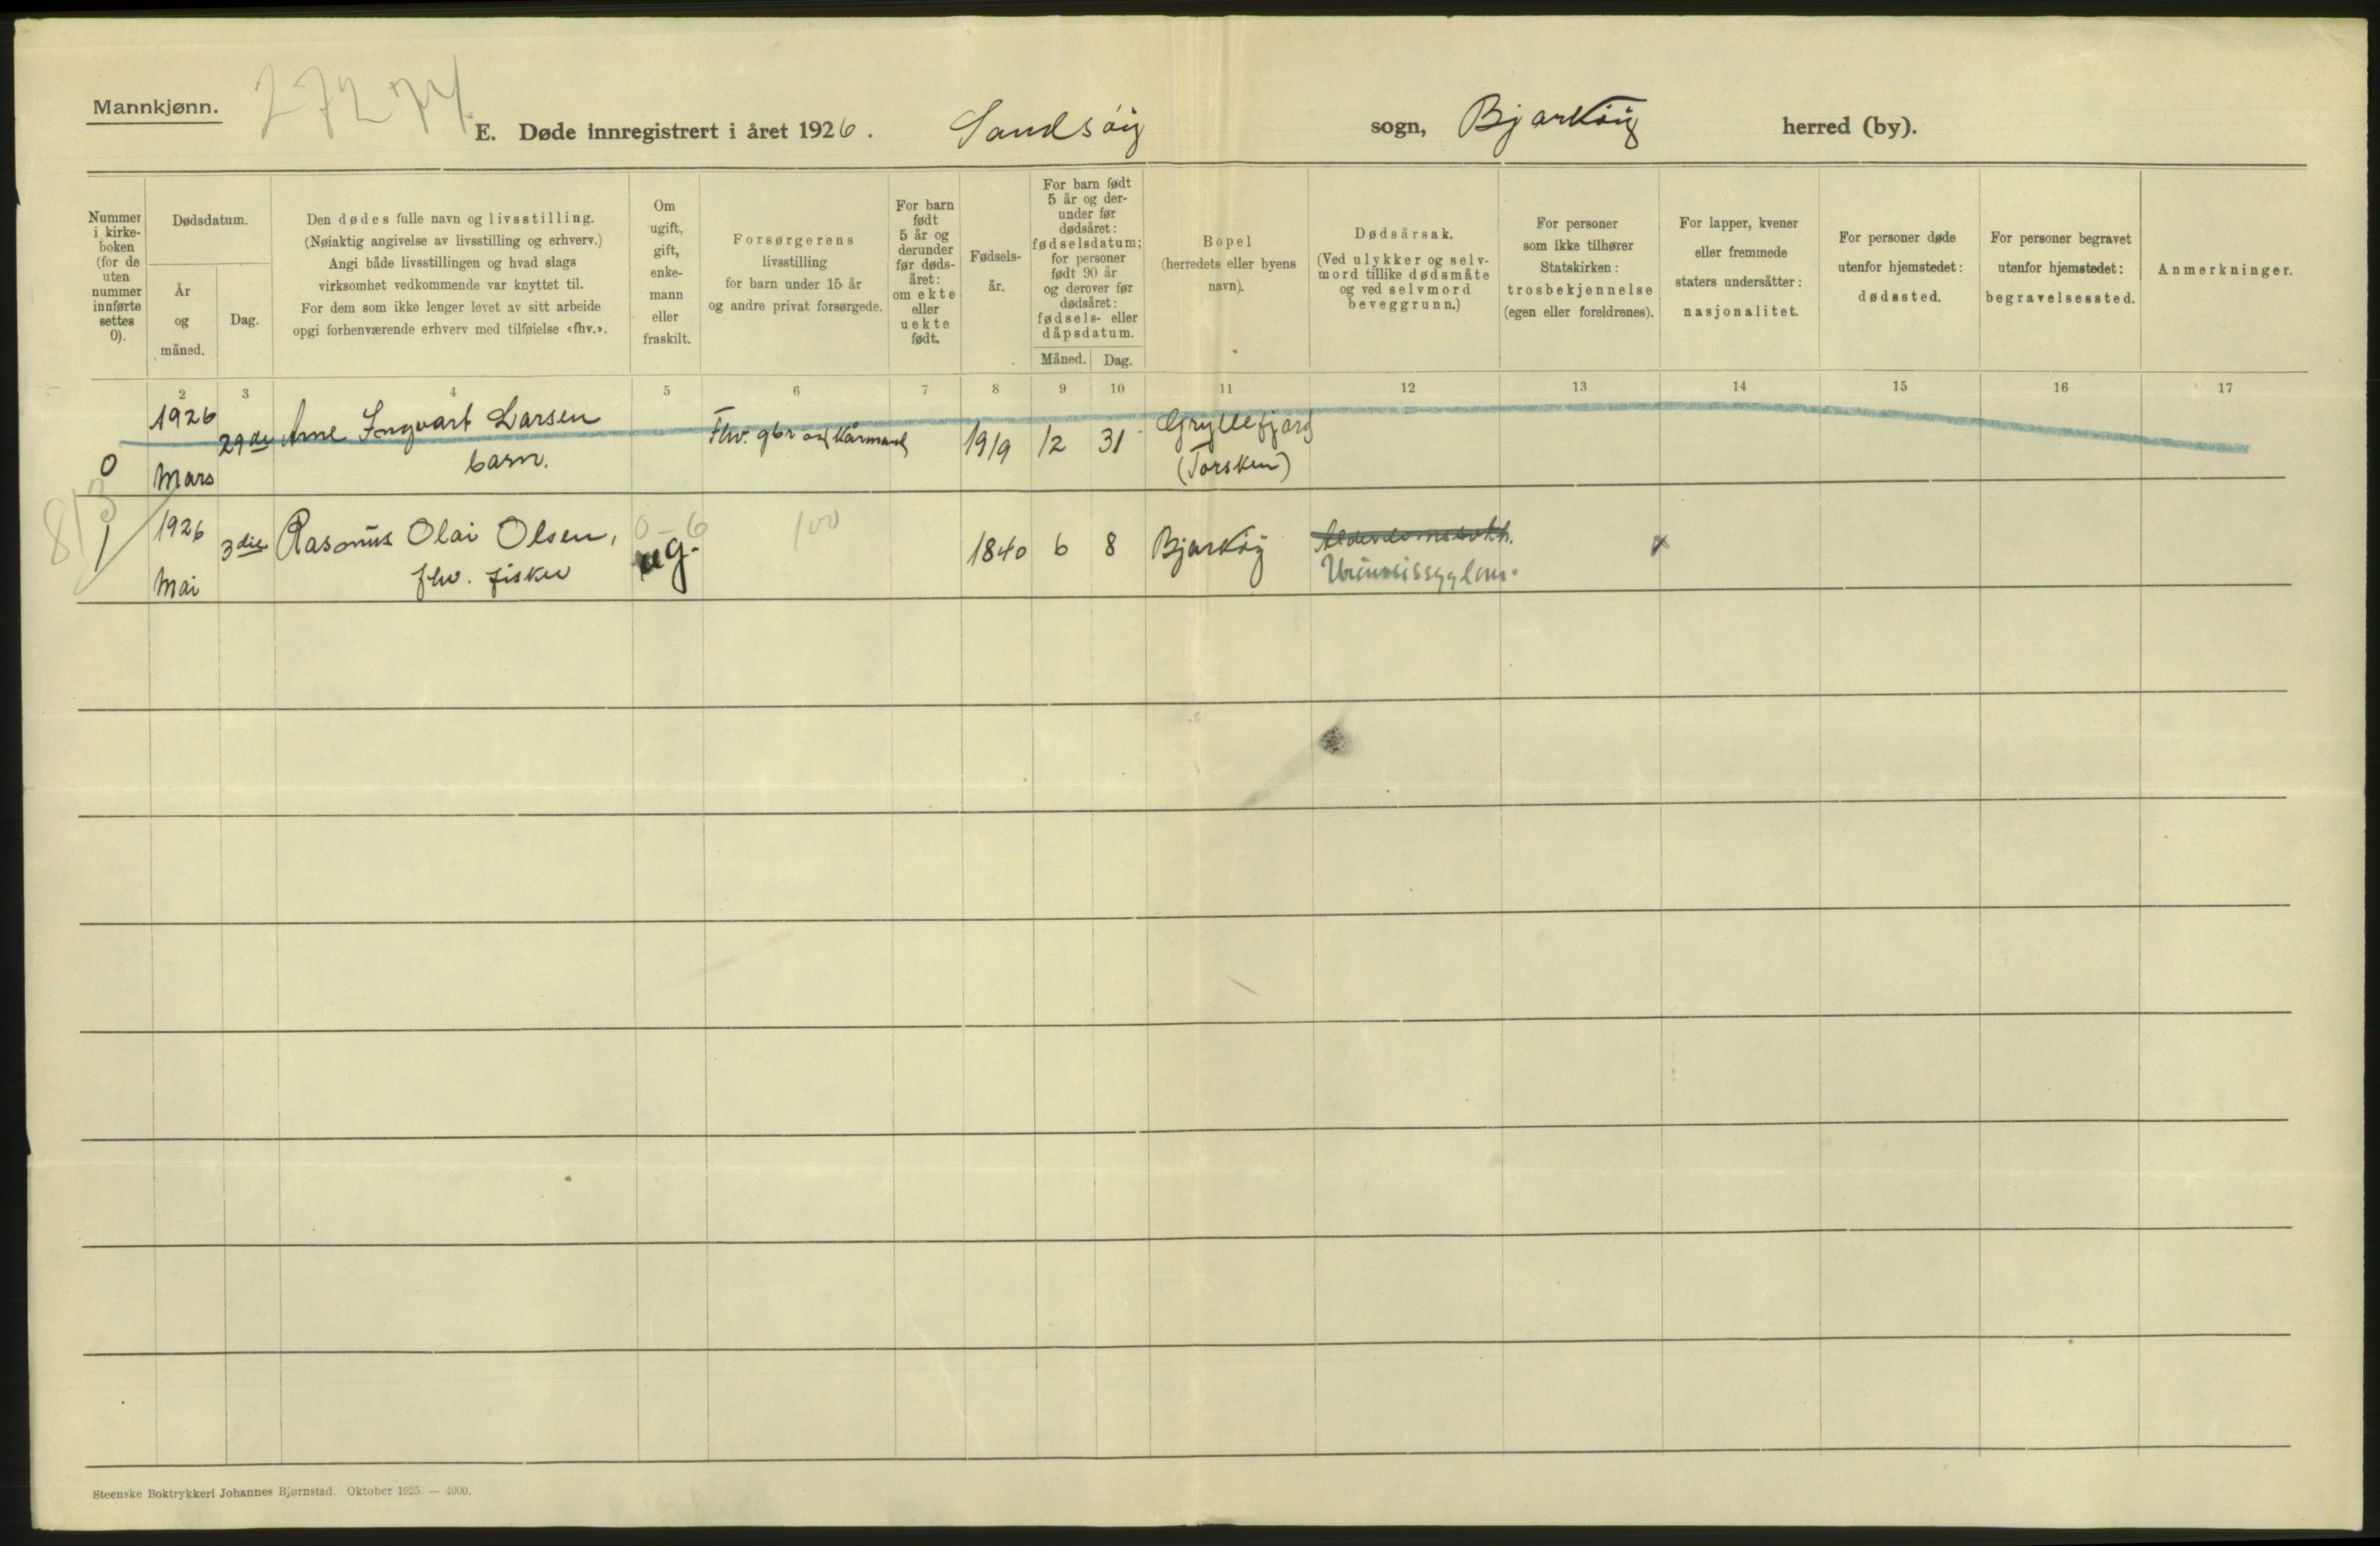 Mannkjønn.
27274
E. Døde innregistrert i året 1926. Sandsøy sogn, Bjarkøy herred (by).
Nummer
i kirke-
boken
(for de
uten
nummer
innførte
settes
0).
Dødsdatum.
År
og
måned.
Dag.
Den dødes fulle navn og livsstilling.
(Nøiaktig angivelse av livsstilling og erhverv.)
Angi både livsstillingen og hvad slags
virksomhet vedkommende var knyttet til.
For dem som ikke lenger levet av sitt arbeide
opgi forhenværende erhverv med tilføielse «fhv.».
Om
ugift,
gift,
enke-
mann
eller
fraskilt.
Forsørgerens
livsstilling
for barn under 15 år
og andre privat forsørgede.
For barn
født
5 år og
derunder
før døds-
året:
om ekte
eller
uekte
født.
Fødsels-
år.
For barn født
5 år og der-
under før
dødsåret:
fødselsdatum;
for personer
født 90 år
og derover før
dødsåret:
fødsels- eller
dåpsdatum.
Måned. Dag.
Bopel
(herredets eller byens
navn).
Dødsårsak.
(Ved ulykker og selv-
mord tillike dødsmåte
og ved selvmord
beveggrunn.)
For personer
som ikke tilhører
Statskirken:
trosbekjennelse
(egen eller foreldrenes).
For lapper, kvener
eller fremmede
staters undersåtter:
nasjonalitet.
For personer døde
utenfor hjemstedet:
dødssted.
For personer begravet
utenfor hjemstedet:
begravelsessted.
Anmerkninger.
2 3 4 5 6 7 8 9 10 11 12 13 14 15 16 17
1926 29de Arne Ingvart Larsen Fhv. gbr og kårmand 1919 12 31 Gryllefjord
0 Mars barn. (Torsken)
813
1 1926 3die Rasmus Olai Olsen, 0-6 100 1840 6 8 Bjarkøy x
Mai fhv. fisker ug.
Steenske Boktrykkeri Johannes Bjørnstad. Oktober 1925. — 4000.